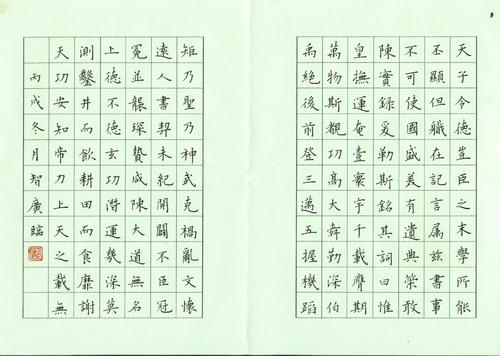 天子令德豈臣之末學所能
丕顯但職在記言屬茲書事
不可使國盛美有遺典策敢
陳實錄爰勒斯銘其詞曰惟
皇撫運奄壹寰宇千載膺期
萬物斯覩功高大舜勤深伯
禹絕後前登三邁五握機蹈
矩乃聖乃神武克禍亂文懷
遠人書契未紀開闢不臣冠
冕並襲琛贄咸陳大道無名
上德不德玄功潛運幾深莫
測鑿井而飲耕田而食靡謝
天功安知帝力上天之載無
丙戌冬月智廣臨